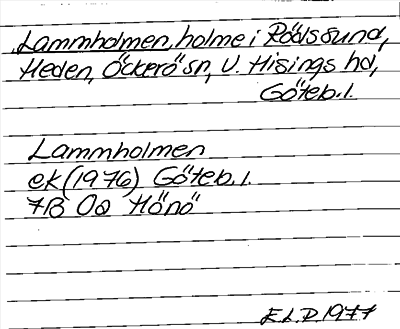 Lammholmen, holme i Rödssund,
Heden, Öckerö sn, V. Hisings hd,
Göteb. l.
Lammholmen
ek (1976) Göteb. l.
7B 0a Hönö
E.L.P. 1977